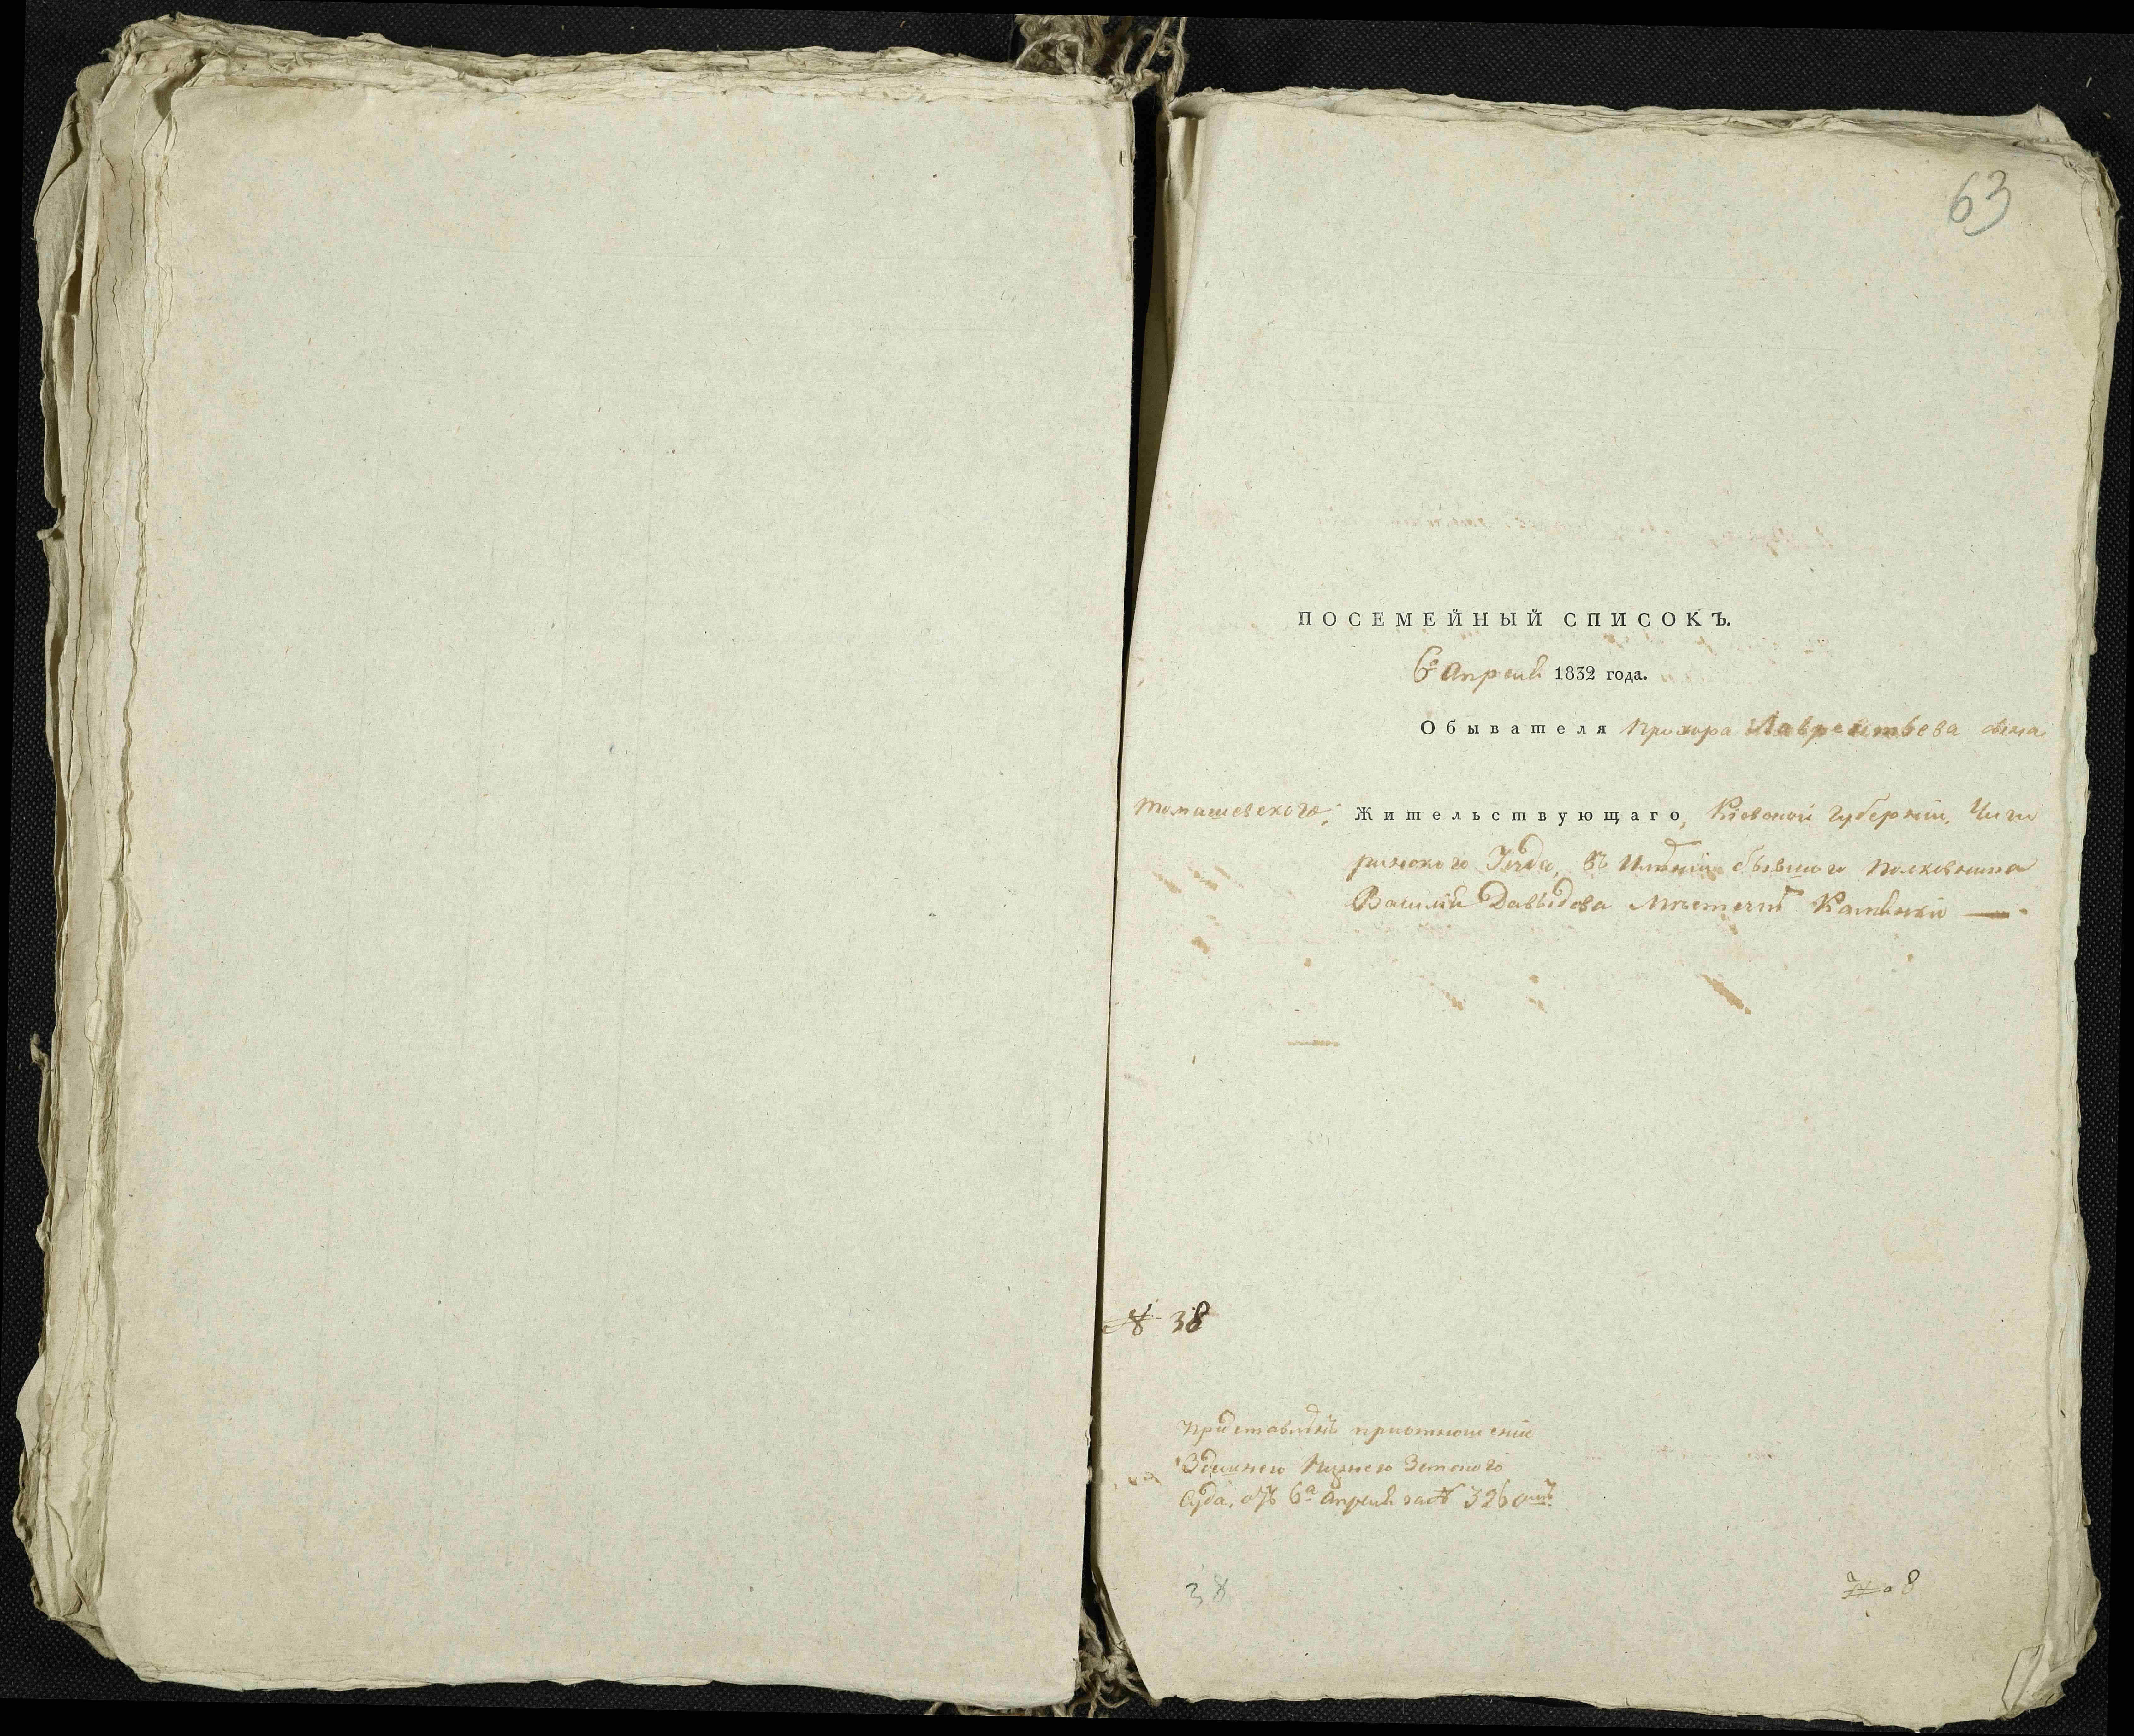 63
ПОСЕМЕЙНЫЙ СПИСОКЪ.
6го Апреля 1832 года.
Обывателя Прохора Лаврентьева сына
Томашевского, Жительствующаго, Кіевской Губерніи, Чиги
ринского Уезда, въ Имѣніи бывшого Полковника
Василія Давыдова Мѣстечкѣ Каменки —
№ 38
Представленъ приотношеніи
Здешнего Нижнего Земского
Суда, отъ 6а Апреля за №
38
№ 8